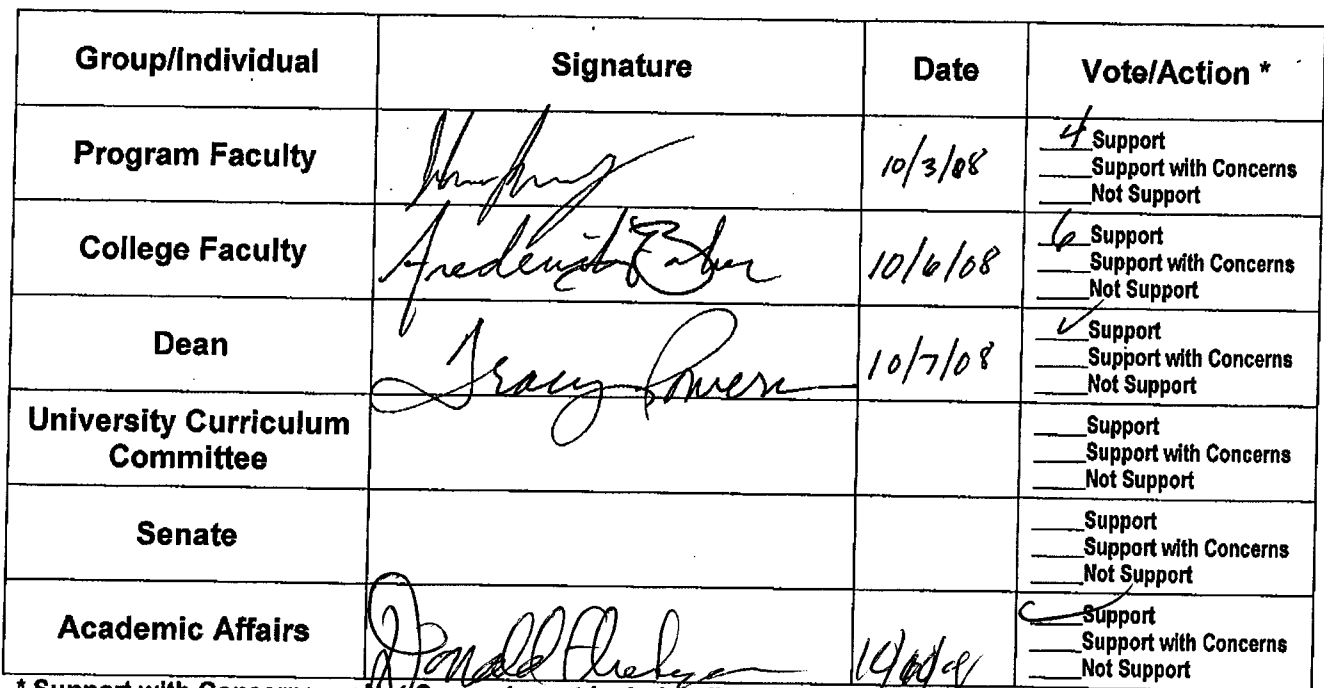 Group/Individual Signature Date Vote/Action *
Program Faculty 10/3/08 4 Support
Support with Concerns
Not Support
College Faculty Frederick Baker 10/6/08 6 Support
Support with Concerns
Not Support
Dean Tracy Powers 10/7/08 ✓ Support
Support with Concerns
Not Support
University Curriculum
Committee
Support
Support with Concerns
Not Support
Senate
Support
Support with Concerns
Not Support
Academic Affairs Donald ✓ Support
Support with Concerns
Not Support
* Support with